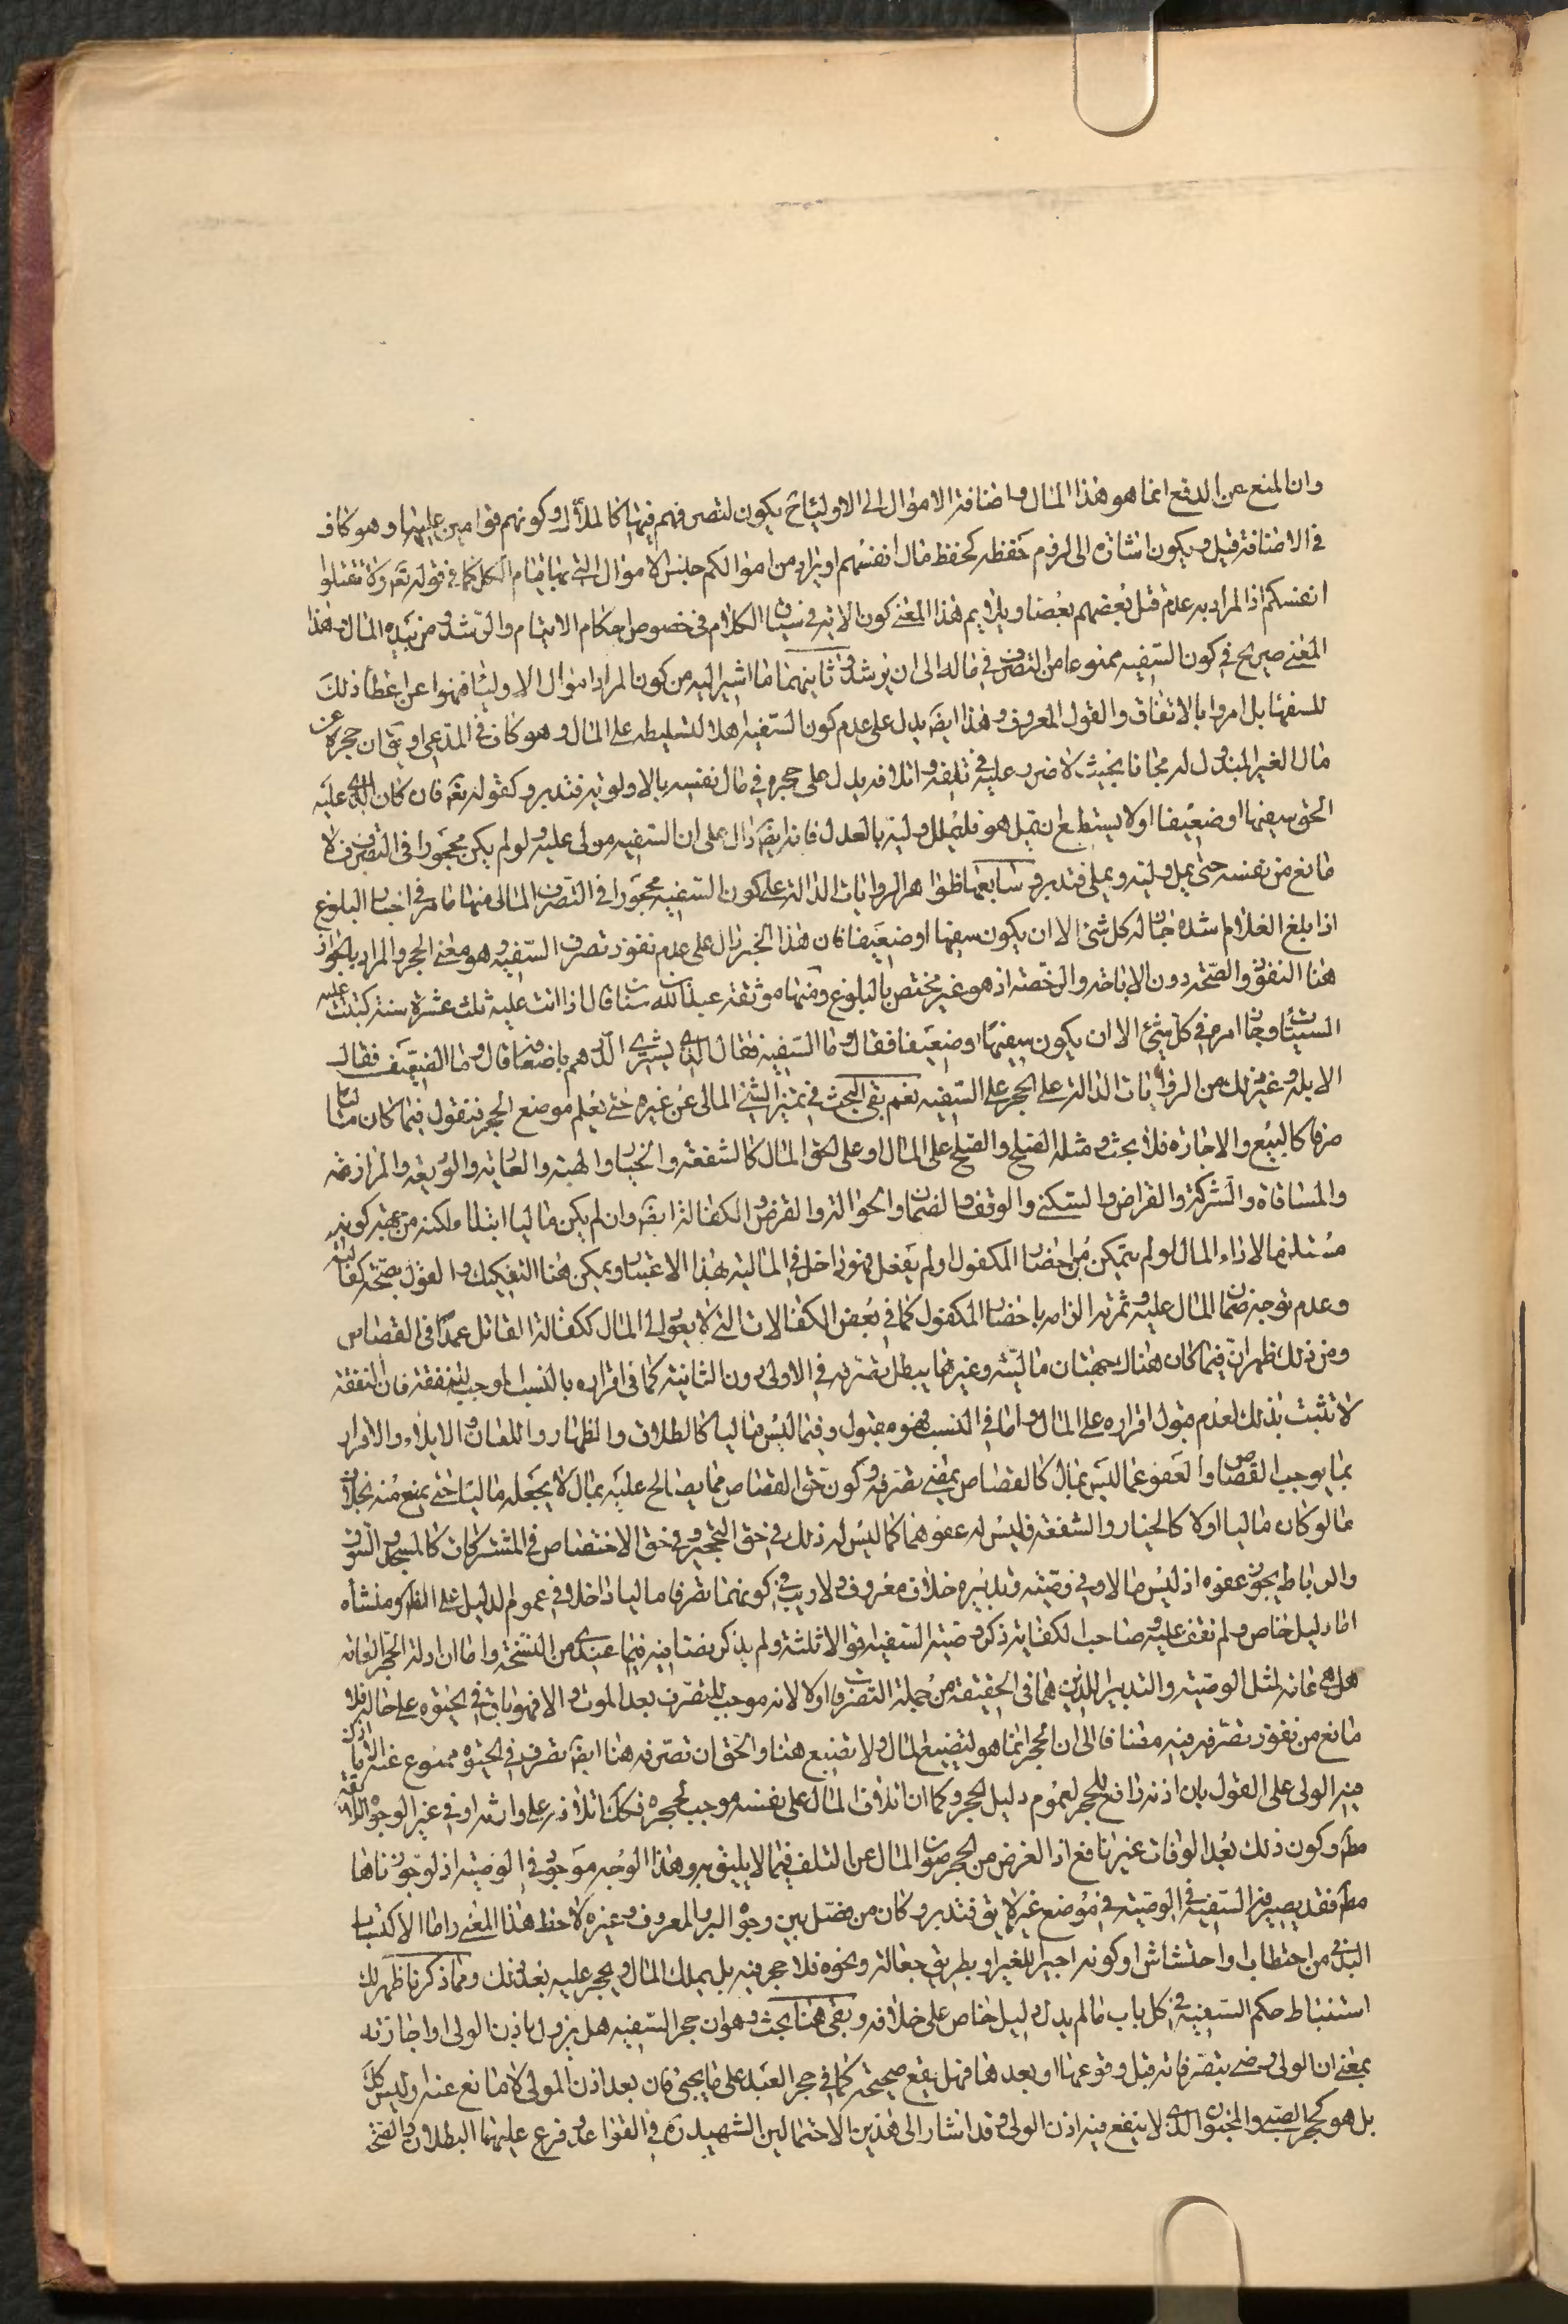 وان المنع عن الدفع انما هو هذا المال واضافة الاموال الى الاولياء ح يكون لتصرفهم فيها كالملاك وكونهم قوامين عليها وهو كاف
في الاضافة قيل ويكون اشارة الى لزوم حفظه كحفظ مال انفسهم او يراد من اموالكم جنس الاموال التي بها قيام الكل كما في قوله تعه ولا تقتلوا
انفسكم اذ المراد به عدم قتل بعضهم بعضا ويلايم هذا المعنى كون الاية في سياق الكلام في خصوص احكام الايتام والرشد من بيده المال هذا
المعنى صريح في كون السفيه ممنوعا من التصرف في ماله الى ان يرشد وثانيهما ما اشير اليه من كون المراد اموال الاولياء فنهوا عن اعطاء ذلك
للسفهاء بل امروا بالانفاق والقول المعروف وهذا ايضه يدل على عدم كون السفيه اهلا لتسليطه على المال وهو كاف في المدعى او يق ان حجره عن
مال الغير المبذول له مجانا بحيث لا ضرر عليه في تلفه واتلافه يدل على حجره في مال نفسه بالاولوية فتدبر وكقوله تعه فان كان الذي عليه
الحق سفيها او ضعيفا او لا يستطيع ان يمل هو فليملل وليه بالعدل فانه ايضه دال على ان السفيه مولى عليه ولو لم يكن محجورا في التصرف لا
مانع من نفسه حتى يمل وليه ويملى فتدبر وسابعها ظواهر الروايات الدالة على كون السفيه محجورا في التصرف المالى منها ما مر في اخبار البلوغ
اذا بلغ الغلام اشده جاز له كل شئ الا ان يكون سفيها او ضعيفا فان هذا الخبر دال على عدم نفوذ تصرف السفيه وهو معنى الحجر والمراد بالجواز
هنا النفوذ والصحة دون الاباحة والرخصة اذ هو غير مختص بالبلوغ ومنها موثقة عبد الله بن سنان قال اذا اتت عليه ثلث عشرة سنة كتبت عليه
السيئات وجاز امره في كل شئ الا ان يكون سفيها او ضعيفا فقال وما السفيه فقال الذي يشترى الدرهم باضعافه قال وما الضعيف فقال
الابله وغير ذلك من الروايات الدالة على الحجر على السفيه نعم بقى البحث في تميز الشئ المالى عن غيره حتى يعلم موضع الحجر فنقول فيما كان ماليا
صرفا كالبيع والاجارة فلا بحث ومثله الصلح والصلح على المال او على الحق المال كالشفعة والخيار والهبة والعارية والوديعة والمزارعة
والمساقاة والشركة والقراض والسكنى والوقف والضمان والحوالة والقرض والكفالة ايضه وان لم يكن ماليا ابتداء لكنه من جهة كونه
مستلزما لاداء المال لو لم يتمكن من احضار المكفول او لم يفعل فهو داخل في المالية بهذا الاعتبار ويمكن هنا التفكيك والقول بصحة كفالته
وعدم توجه ضمان المال عليه وثمرته الزامه باحضار المكفول كما في بعض الكفالات التي لا يعول الى المال ككفالة القاتل عمدا في القصاص
ومن ذلك ظهر ان فيما كان هناك جهتان مالية وغيرها يبطل تصرفه في الاولى دون الثانية كما في اقراره بالنسب الموجب للنفقة فان النفقة
لا تثبت بذلك لعدم قبول اقراره على المال واما في النسب فهو مقبول وفيما ليس ماليا كالطلاق والظهار واللعان والايلاء والاقرار
بما يوجب القصاص والعفو عما ليس بمال كالقصاص يمضى تصرفه وكون حق القصاص مما يصالح عليه بمال لا يجعله ماليا حتى يمنع منه بخلاف
ما لو كان ماليا اولا كالخيار والشفعة فليس له عفوهما كما ليس له ذلك في حق التحجير وفي حق الاختصاص في المشتركات كالمسجد والسوق
والرباط يجوز عفوه اذ ليس مالا وفي وصيته وتدبيره خلاف معروف ولا ريب في كونهما تصرفا ماليا داخلا في عموم الدليل على المنع ومنشأه
اما دليل خاص ولم نقف عليه وصاحب الكفاية ذكر وصية السفيه اقوالا ثلثة ولم يذكر نصا فيه فيما عندى من النسخة واما ان ادلة الحجر العامة
هل هي عامة لمثل الوصية والتدبير اللذين هما في الحقيقة من جملة التصرفات اولا لانه موجب للتصرف بعد الموت والا فهو باق في الحيوة على حاله فلا
مانع من نفوذ تصرفه فيه مضافا الى ان الحجر انما هو لتضييع المال ولا تضييع هنا والحق ان تصرفه هنا ايضه تصرف في الحيوة ممنوع عنه الا ما اذن
فيه الولى على القول بان اذنه رافع للحجر لعموم دليل الحجر وكما ان اتلاف المال على نفسه موجب لحجره فكك اتلافه على وارثه او في غير الوجوه اللائقة
مطه وكون ذلك بعد الوفات غير نافع اذ الغرض من الحجر صون المال عن التلف فيما لا يليق به وهذا الوجه موجود في الوصية اذ لو جوزناها
مطه فقد يصيرها السفيه في الوصية في موضع غير لايق فتدبر وكان من فصل بين وجوه البر والمعروف وغيره لاحظ هذا المعنى واما الاكتساب
البدني من احتطاب واحتشاش او كونه اجيرا للغير او بطريق جعالة ونحوه فلا حجر فيه بل يملك المال ويحجر عليه بعد ذلك ومما ذكرنا ظهر لك
استنباط حكم السفيه في كل باب ما لم يدل دليل خاص على خلافه وبقى هنا بحث وهو ان حجر السفيه هل يزول باذن الولى او اجازته
بمعنى ان الولى لو رضى بتصرفاته قبل وقوعها او بعدها فهل يقع صحيحة كما في حجر العبد على ما يجئ فان بعد اذن المولى لا مانع عنه او ليس كك
بل هو كحجر الصبى والمجنون الذى لا ينفع فيه اذن الولى وقد اشار الى هذين الاحتمالين الشهيد ره في القواعد وفرع عليهما البطلان والصحة